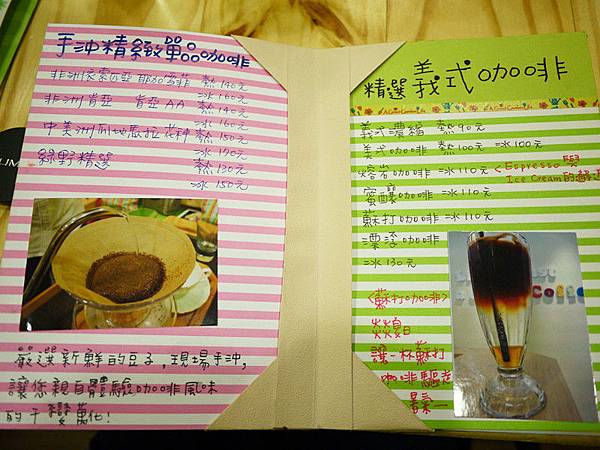 手沖精緻單品咖啡
非洲衣索匹亞 耶加雪菲 熱140元
冰160元
非洲肯亞 肯亞AA 熱140元
冰160元
中美洲瓜地馬拉花神 熱150元
冰170元
綠野精選 熱130元
冰150元
嚴選新鮮的豆子,現場手沖,
讓您親自體驗咖啡風味
的千變萬化!
精選義式咖啡
義式濃縮 熱90元
美式咖啡 熱100元 冰100元
熔岩咖啡 冰110元 <Espresso與
Ice Cream的
蜜釀咖啡 冰110元
蘇打咖啡 冰110元
漂浮咖啡
冰130元
<蘇打咖啡>
炎炎夏日
讓一杯蘇打
咖啡驅走
暑氣